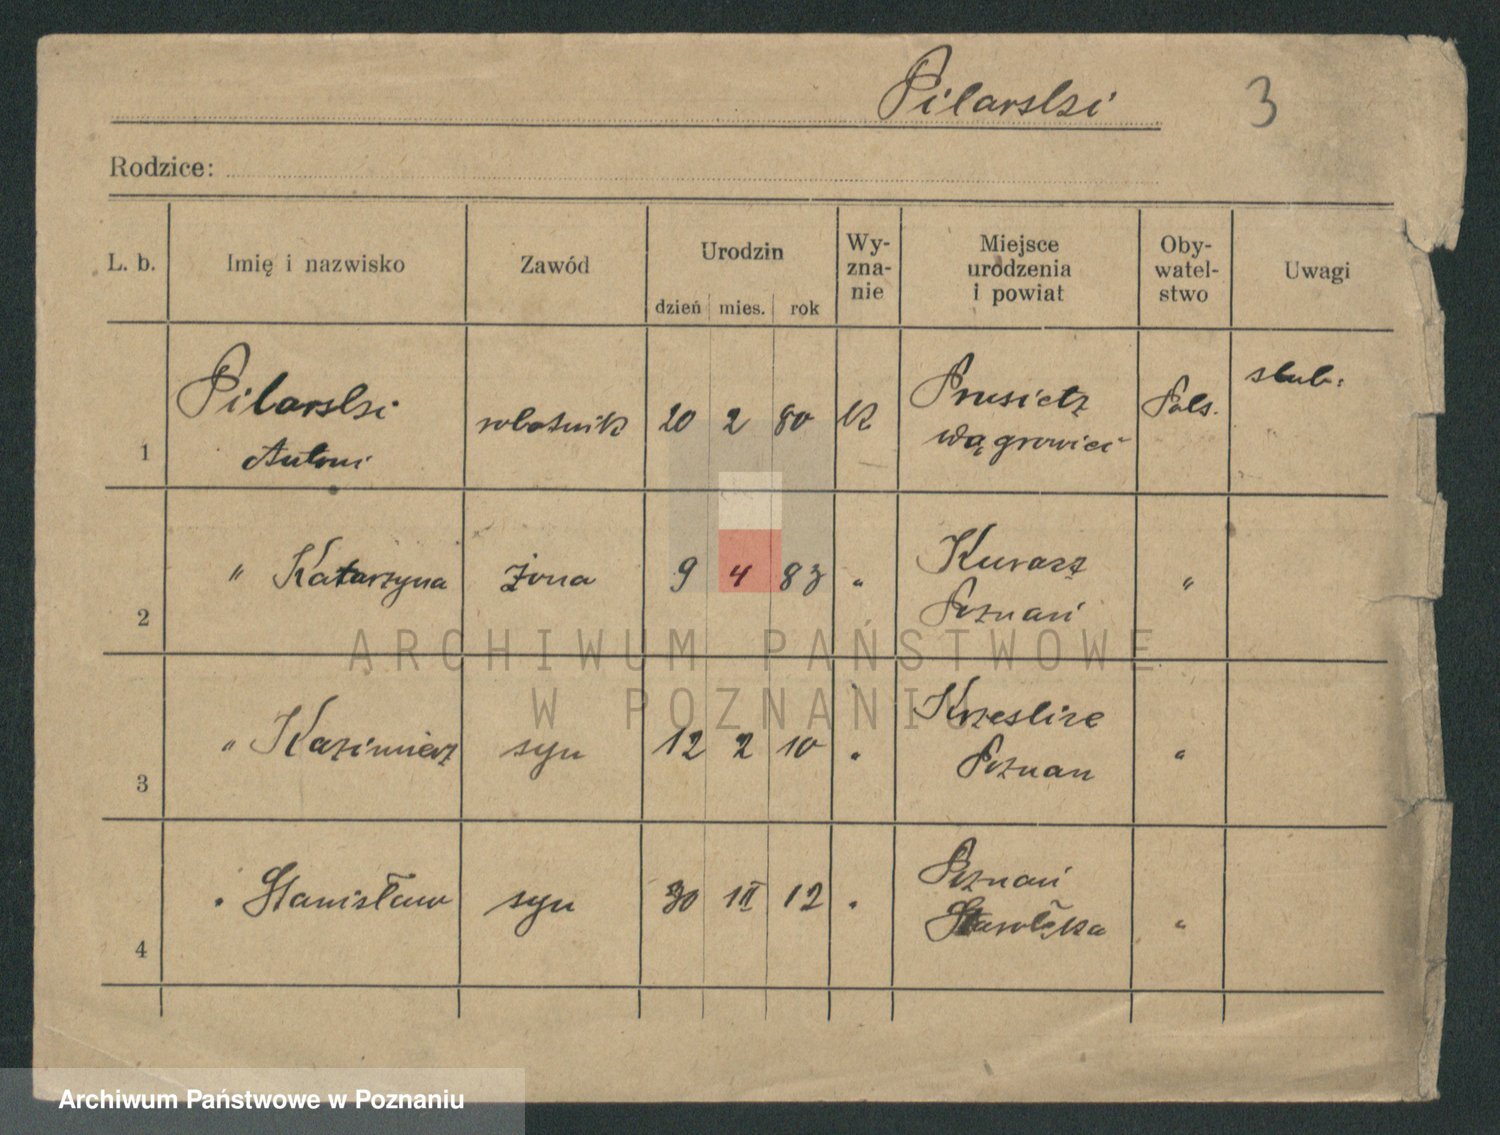 Pilarski
3
Rodzice:
L. b. Imię i nazwisko Zawód Urodzin dzień mies. rok Wy-zna-nie Miejsce urodzenia i powiat Oby-watel-stwo Uwagi
1 Pilarski Antoni robotnik 20 2 80 K Prusietz Wągrowiec Pols. slub:
2 " Katarzyna żona 9 4 83 " Poznań "
3 " Kazimierz syn 12 2 10 " Krzeslice Poznan "
4 " Stanisław syn 30 III 12 " Poznań Starołęka "
ARCHIWUM PAŃSTWOWE
W POZNANIU
Archiwum Państwowe w Poznaniu